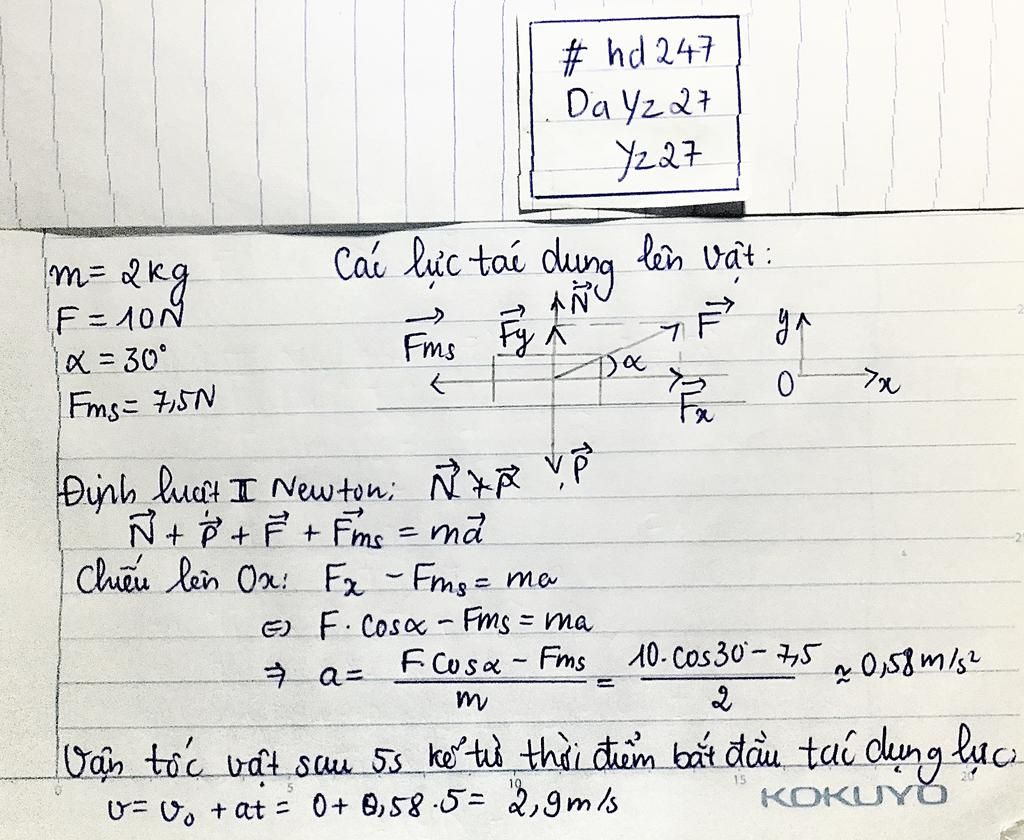 # hd247
Da Yz27
Yz27
m = 2kg
F = 10N
α = 30°
Fms = 7,5N
Các lực tác dụng lên vật:
N⃗
F⃗ms F⃗y F⃗ y
α
F⃗x O x
P⃗
Định luật II Newton:
N⃗ + P⃗ + F⃗ + F⃗ms = ma⃗
Chiếu lên Ox: Fx - Fms = ma
⇔ F. cosα - Fms = ma
⇒ a = (F. cosα - Fms)/m = (10. cos30 - 7,5)/2 ≈ 0,58 m/s²
Vận tốc vật sau 5s kể từ thời điểm bắt đầu tác dụng lực,
v = v₀ + at = 0 + 0,58 . 5 = 2,9 m/s
5 10 15 20
KOKUYO